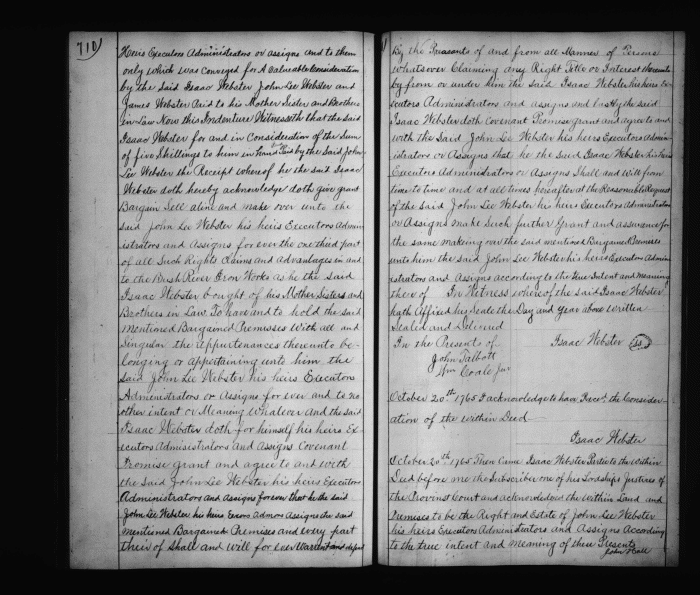 710
Heirs Executors Administrators or assigns and to them
only which was conveyed for A valueable Consideration
by the Said Isaac Webster John Lee Webster and
James Webster Paid to his Mother Sister and Brothers
in Law Now this Indenture Witnesseth that the said
Isaac Webster for and in Consideration of the Sum
of five Shillings to him in hand Paid by the Said John
Lee Webster the Receipt whereof he the said Isaac
Webster doth hereby acknowledge doth give grant
Bargain Sell alin and make over unto the
said John Lee Webster his heirs Executors Admin
istrators and Assigns for ever the one third part
of all Such Rights Claims and Advantages in and
to the Bush River Iron Works as he the said
Isaac Webster bought of his Mother Sisters and
Brothers in Law To have and to hold the said
Mentioned Bargained Premisses With all and
Singular the appurtenances thereunto be-
longing or appertaining unto him the
said John Lee Webster his heirs Executors
Administrators or Assigns for ever and to no
other intent or Meaning Whatever and the said
Isaac Webster doth for himself his heirs Ex-
ecutors Administrators and Assigns Covenant
Promise grant and agree to and with
the Said John Lee Webster his heirs Executors
Administrators and Assigns forever that he the said
John Lee Webster his heirs Exors Admors Assigns the said
mentioned Bargained Premises and every part
their of Shall and Will for ever Warrent and
By the Presents of and from all Manner of Persons
Whatsover Claiming any Right Title or Interest thereunto
by from or under him the Said Isaac Webster his heirs Ex-
ecutors Administrators and assigns and Lastly the said
Isaac Webster doth Covenant Promise grant and agree to and
with the Said John Lee Webster his heirs Executors Admin-
istrators or Assigns that he the Said Isaac Webster his heirs
Executors Administrators or Assigns Shall and Will from
time to time and at all times hereafter at the Reasonable Request
of the said John Lee Webster his heirs Executors Administrators
or Assigns make Such further Grant and assurance for
the same making over the said mentioned Bargained Premises
unto him the said John Lee Webster his heirs Executors Admin
istrators and Assigns according to the true Intent and Meaning
there of In Witness whereof the said Isaac Webster
hath Affixed his Seale the Day and Year above Written
Sealed and Delivered
In the Presents of Isaac Webster
John Talbott
Wm Coale Jur
October 20th 1765 I acknowledge to have Recd. the Consider-
ation of the Within Deed
Isaac Webster
October 20th 1765 Then Came Isaac Webster Partie to the Within
Deed before me the Subscriber one of his Lordships Justices of
the Provinst Court and acknowledged the Within Land and
Premises to be the Right and Estate of John Lee Webster
his heirs Executors Administrators and Assigns According
to the true intent and Meaning of these Presents
John Hall